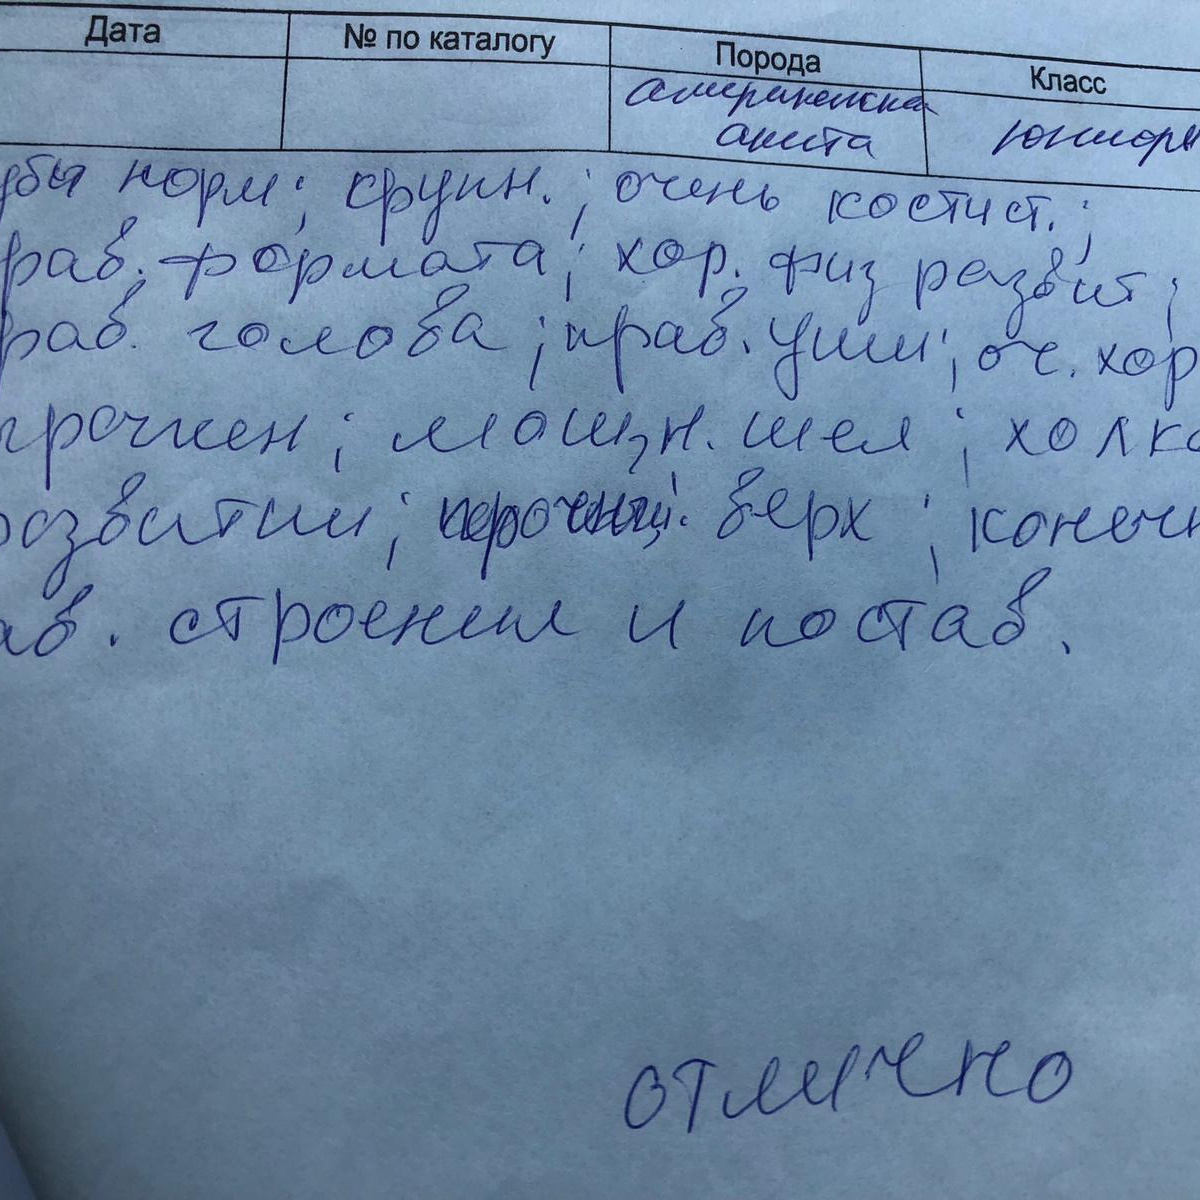 Дата № по каталогу Порода Класс
американска
акита юниоры
убы норм; крупн.; очень костист.;
раб. формата; хор. физ развит;
раб. голова; прав. уши; оч. хор
прочкен; мощн. шея; холка
развитии; верх; конечн
ав. строения и постав.
отлично